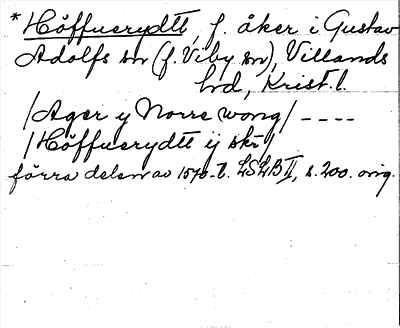 *Höffuerydtt, f. åker i Gustav
Adolfs sn (f. Viby sn), Villands
hd, Krist. l.
/Ager y Norre wong/ ----
/Höffuerydtt ij skr/
förra delen av 1570-t. LSLB II, s. 200. orig.